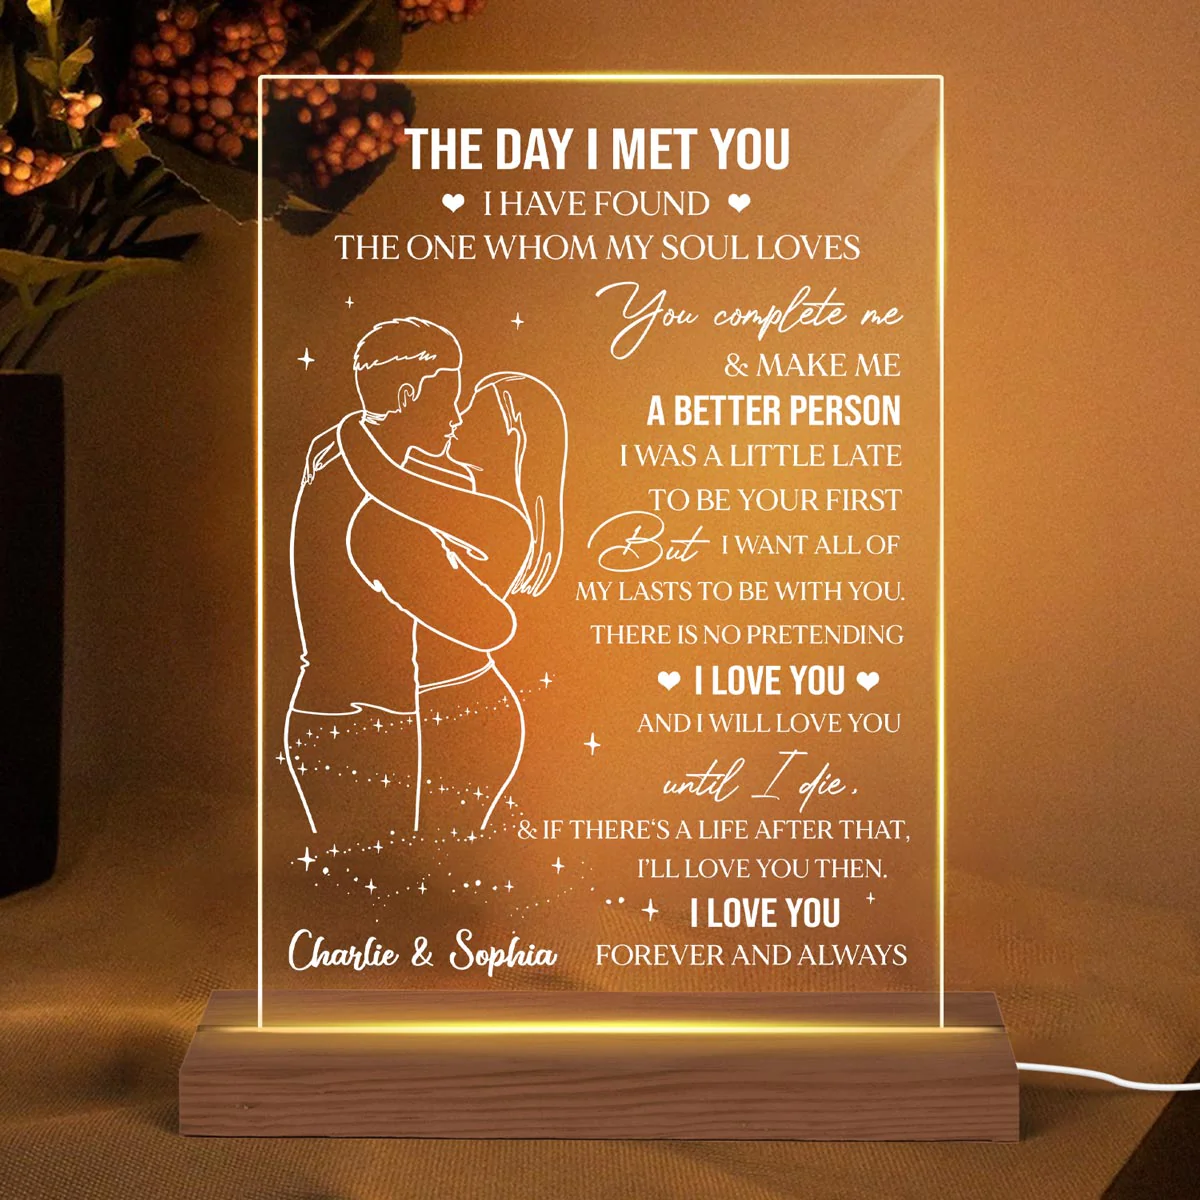 THE DAY I MET YOU
I HAVE FOUND
THE ONE WHOM MY SOUL LOVES
You complete me
& MAKE ME
A BETTER PERSON
I WAS A LITTLE LATE
TO BE YOUR FIRST
But I WANT ALL OF
MY LASTS TO BE WITH YOU.
THERE IS NO PRETENDING
I LOVE YOU
AND I WILL LOVE YOU
until I die,
& IF THERE'S A LIFE AFTER THAT,
I'LL LOVE YOU THEN.
I LOVE YOU
FOREVER AND ALWAYS
Charlie & Sophia